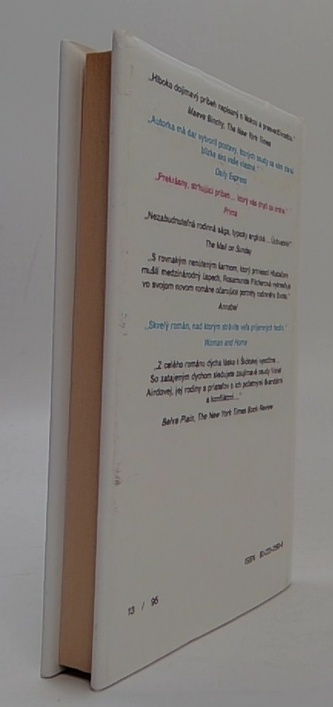 „Hlboko dojímavý príbeh napísaný s láskou a presvedčivosťou."
Maeve Binchy, The New York Times
„Autorka má dar vytvoriť postavy, ktorých osudy sa vám stanú
blízke ako vaše vlastné."
Daily Express
„Prekrásny, strhujúci príbeh... ktorý vás chytí za srdce."
Prima
„Nezabudnuteľná rodinná sága, typicky anglická... Úchvatná!"
The Mail on Sunday
„S rovnakým nenúteným šarmom, ktorý priniesol
medzinárodný úspech, Rosamunde Pilcherová
vo svojom novom románe očarujúce portréty rodinného života."
Annabel
„Skvelý román, nad ktorým strávite veľa príjemných hodín."
Woman and Home
„Z celého románu dýcha láska k Škótskej vysočine...
So zatajeným dychom sledujete zaujímavé osudy Violet
Airdovej, jej rodiny a priateľov s ich pôvabnými škandálmi
a konfliktmi..."
Belva Plain, The New York Times Book Review
ISBN
13 / 96